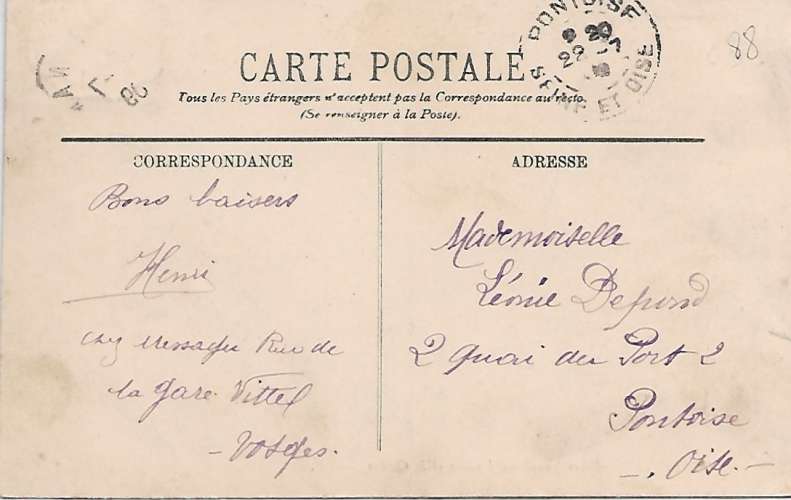 PONTOISE
SEINE ET OISE
22
88
CARTE POSTALE
Tous les Pays étrangers n'acceptent pas la Correspondance au recto
(Se renseigner à la Poste).
CORRESPONDANCE
Bons baisers
Henri
Rue de
la gare Vittel
- Vosges.
ADRESSE
Mademoiselle
Léonie
2 quai du Port 2
Pontoise
-. Oise. -